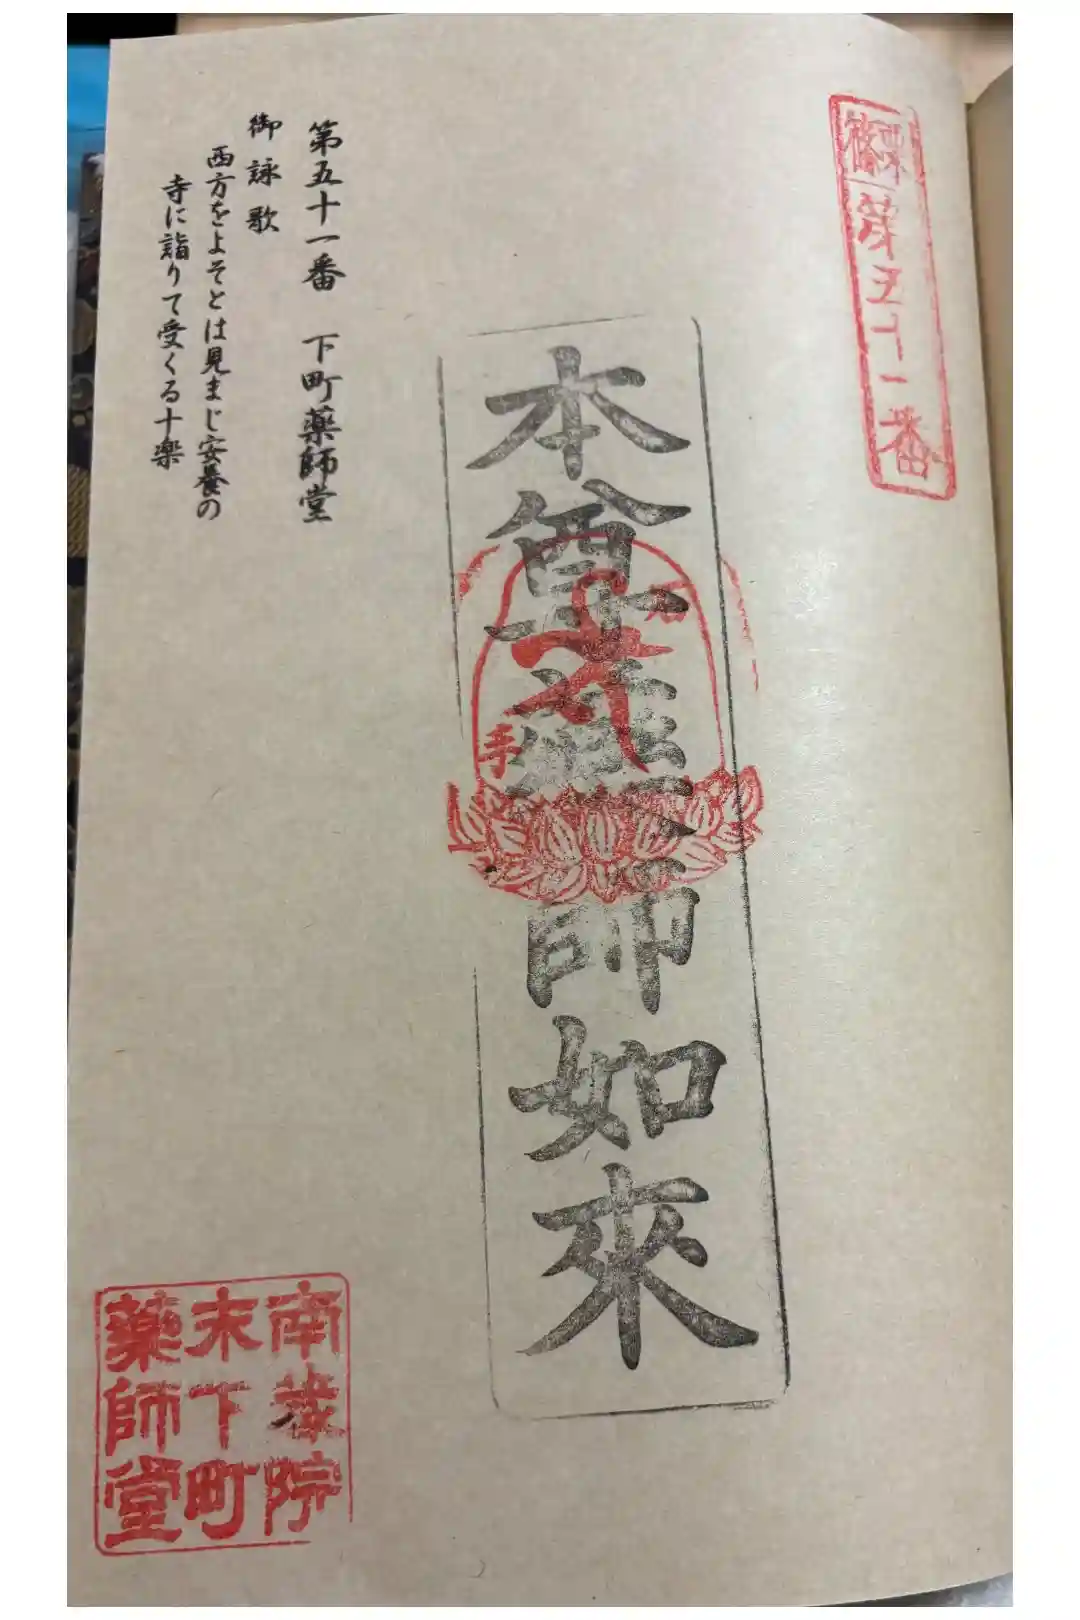 篠栗
第五十一番
本尊薬師如來
第五十一番 下町薬師堂
御詠歌
西方をよそとは見まじ安養の
寺に詣りて受くる十楽
石
手
南蔵院
末下町
薬師堂